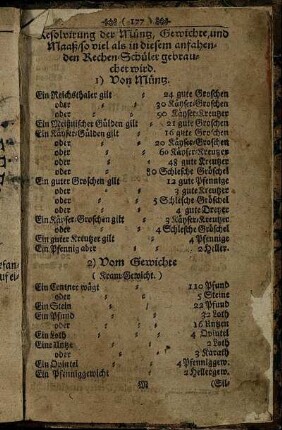 ( 177 )
Resolvirung der Müntz, Gewichte, und
Maaß/so viel als in diesem anfahen-
den Rechen-Schüler gebrau-
chet wird.
1) Von Müntz.
Ein Reichsthaler gilt 24 gute Groschen
oder 30 Käyser-Groschen
oder 90 Käyser-Kreutzer
Ein Meißnischer Gülden gilt 21 gute Groschen
Ein Käyser-Gülden gilt 16 gute Groschen
oder 20 Käyser-Groschen
oder 60 Käyser-Kreutzer
oder 48 gute Kreutzer
oder 80 Schlesche Gröschel
Ein guter Groschen gilt 12 gute Pfennige
oder 3 gute Kreutzer
oder 5 Schlesche Gröschel
oder 4 gute Dreyer
Ein Käyser-Groschen gilt 3 Käyser-Kreutzer
oder 4 Schlesche Gröschel
Ein guter Kreutzer gilt 4 Pfennige
Ein Pfennig aber 2 Heller.
2) Vom Gewichte
( Kram-Gewicht. )
Ein Centner wägt 110 Pfund
oder 5 Steine
Ein Stein 22 Pfund
Ein Pfund 32 Loth
oder 16 Untzen
Ein Loth 4 Quintel
Eine Untze 2 Loth
oder 3 Karath
Ein Quintel 4 Pfenniggew.
Ein Pfenniggewicht 2 Hellergew.
M (Sil-